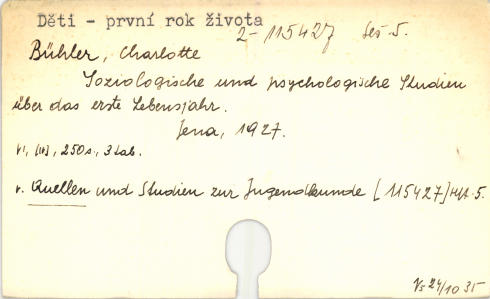 Děti - první rok života
2-115427 Seš 5.
Bühler, Charlotte
Soziologische und psychologische Studien
über das erste Lebensjahr.
Jena, 1927.
VI, [III], 250 s., 3 tab.
v. Quellen und Studien zur Jugendkunde [115427] Hft. 5.
Vs 24/10 35